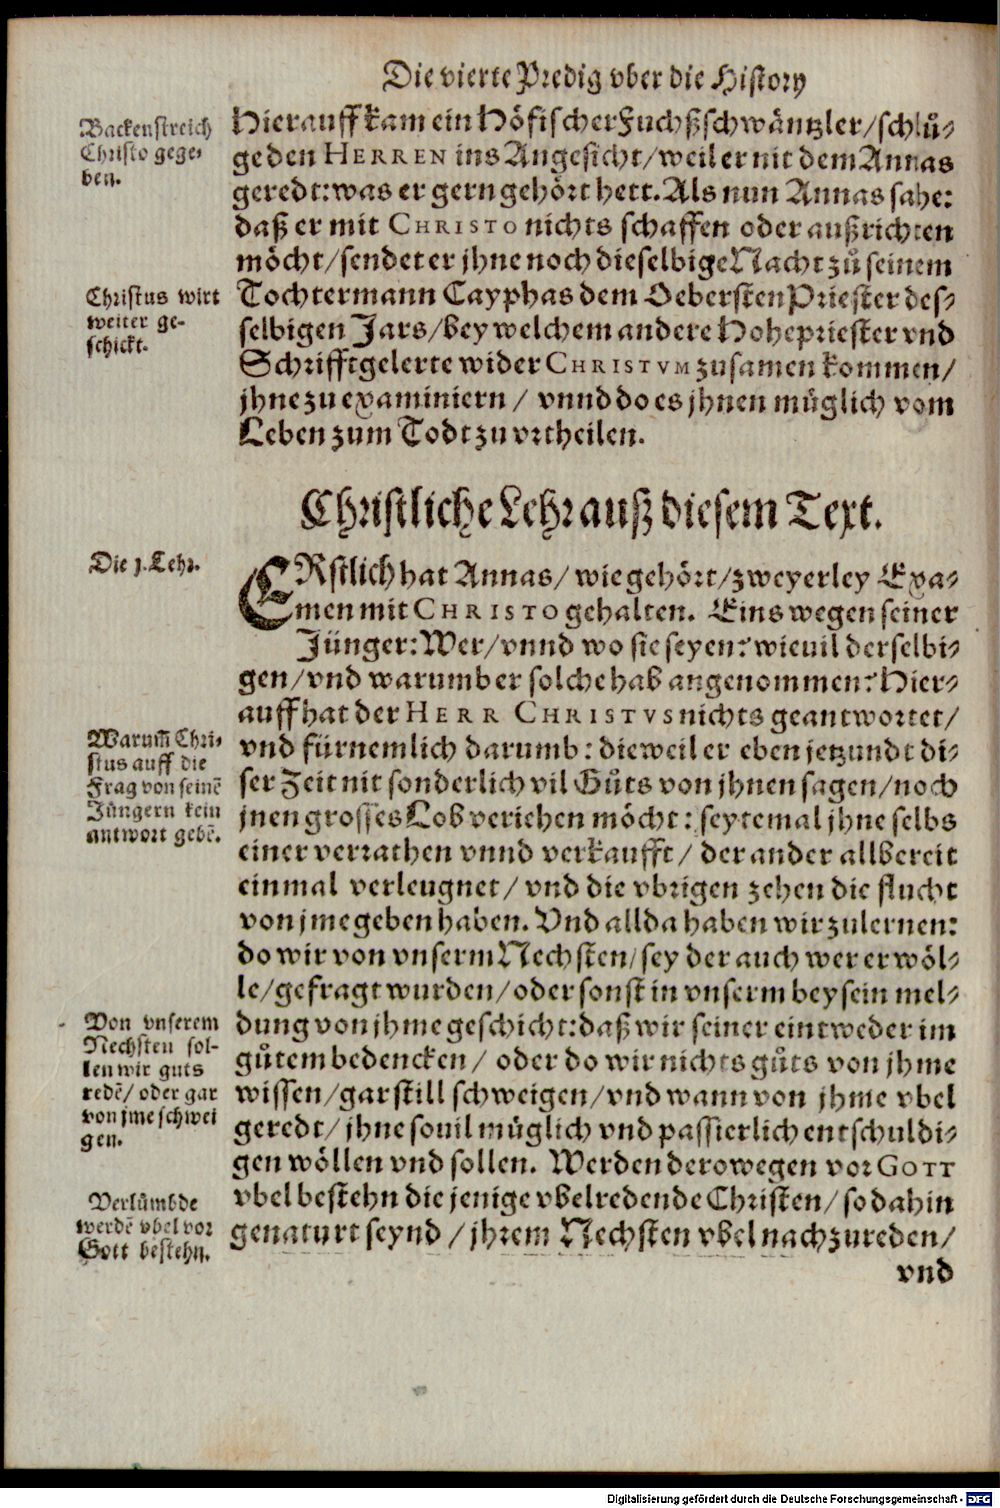 Die vierte Predig vber die History
Backenstreich
Christo gege-
ben.
Hierauff kam ein Höfischer Fuchßschwäntzler/schlů-
ge den HERREN ins Angesicht/weil er nit dem Annas
geredt: was er gern gehört hett. Als nun Annas sahe:
daß er mit CHRISTO nichts schaffen oder außrichten
möcht/sendet er jhne noch dieselbige Nacht zů seinem
Christus wirt
weiter ge-
schickt.
Tochtermann Cayphas dem Oebersten Priester des-
selbigen Jars/bey welchem andere Hohepriester vnd
Schrifftgelerte wider CHRISTVM zusamen kommen/
jhne zu examiniern/ vnnd do es jhnen müglich vom
Leben zum Todt zu vrtheilen.
Christliche Lehr auß diesem Text.
Die 1. Lehr.
ERstlich hat Annas/ wie gehört/zweyerley Exa-
men mit CHRISTO gehalten. Eins wegen seiner
Jünger: Wer/vnnd wo sie seyen? wieuil derselbi-
gen/vnd warumb er solche hab angenommen? Hier-
auff hat der HERR CHRISTVS nichts geantwortet/
Warum̃ Chri-
stus auff die
Frag von seinẽ
Jüngern kein
antwort gebẽ.
vnd fürnemlich darumb: dieweil er eben jetzundt di-
ser Zeit nit sonderlich vil Gůts von jhnen sagen/noch
jnen grosses Lob veriehen möcht: seytemal jhne selbs
einer verrathen vnnd verkaufft/ der ander allbereit
einmal verleugnet/ vnd die vbrigen zehen die flucht
von jme geben haben. Vnd allda haben wir zulernen:
do wir von vnserm Nechsten/sey der auch wer er wöl-
le/gefragt wurden/oder sonst in vnserm beysein mel-
Von vnserem
Nechsten sol-
len wir guts
redẽ/ oder gar
von jme schwei
gen.
dung von jhme geschicht: daß wir seiner eintweder im
gůtem bedencken/ oder do wir nichts gůts von jhme
wissen/gar still schweigen/vnd wann von jhme vbel
geredt/ jhne souil müglich vnd passierlich entschuldi-
gen wöllen vnd sollen. Werden derowegen vor GOTT
Verlůmbde
werdẽ vbel vor
Gott bestehn.
vbel bestehn die jenige vbelredende Christen/ so dahin
genaturt seynd/jhrem Nechsten vbel nachzureden/
vnd
Digitalisierung gefördert durch die Deutsche Forschungsgemeinschaft - DFG